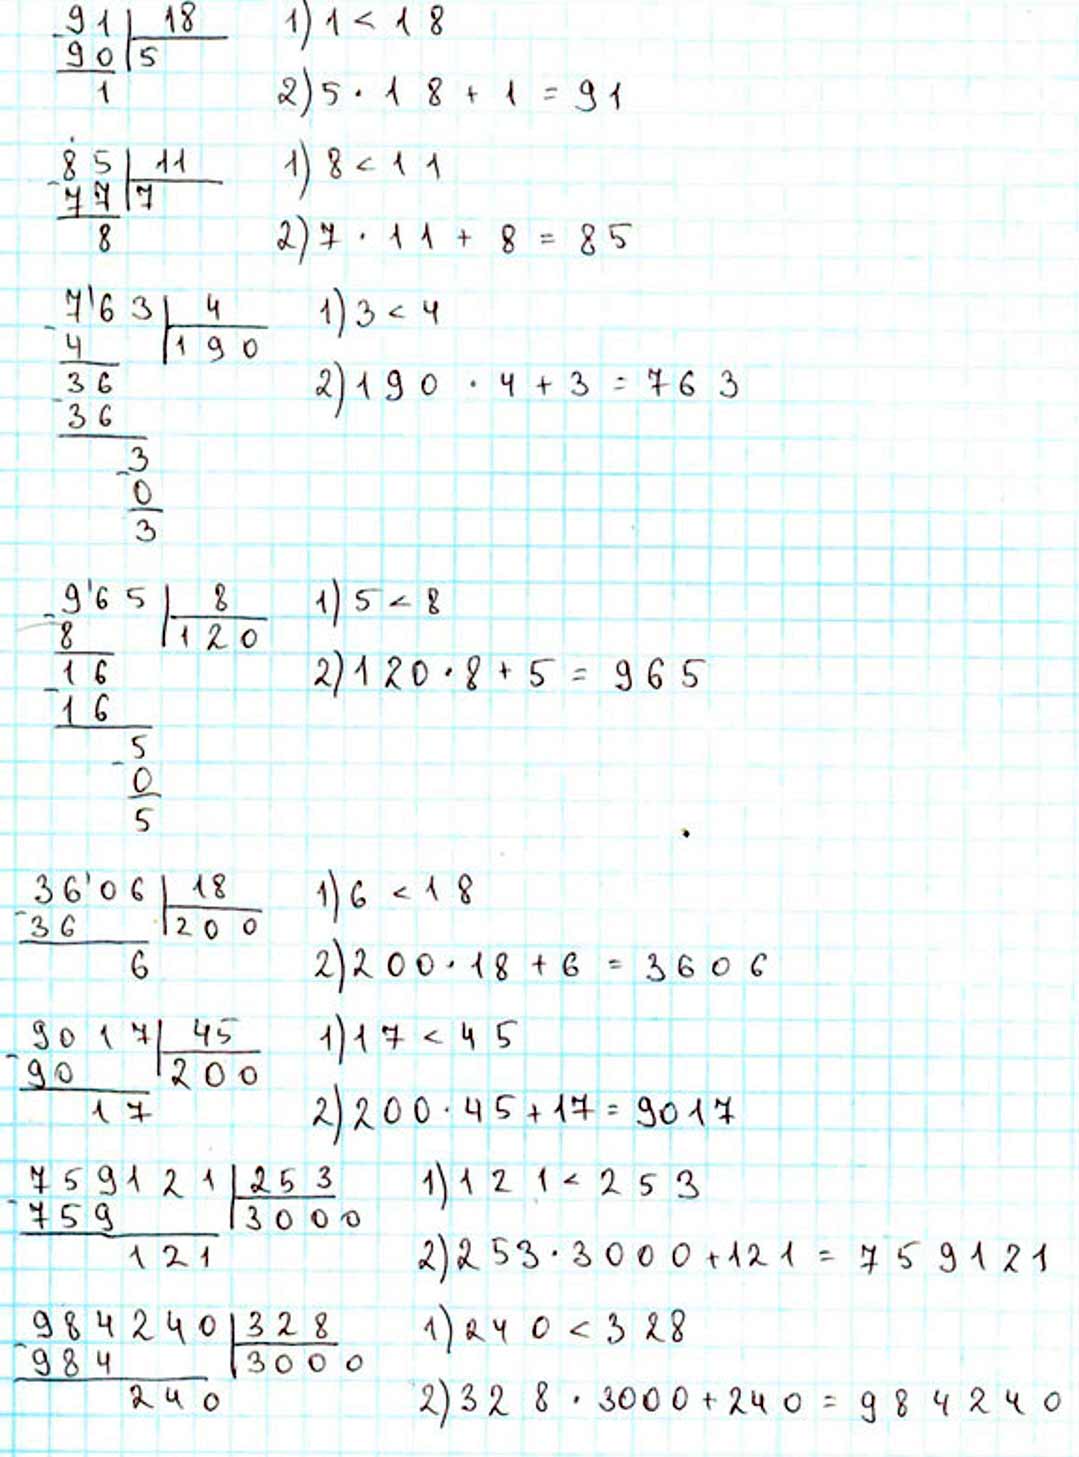 91 | 18 1) 1 < 18
90 | 5
1 2) 5 · 18 + 1 = 91
85 | 11 1) 8 < 11
77 | 7
8 2) 7 · 11 + 8 = 85
7'63 | 4 1) 3 < 4
4 | 190
36 2) 190 · 4 + 3 = 763
36
3
0
3
9'65 | 8 1) 5 < 8
8 | 120
16 2) 120 · 8 + 5 = 965
16
5
0
5
36'06 | 18 1) 6 < 18
36 | 200
6 2) 200 · 18 + 6 = 3606
9017 | 45 1) 17 < 45
90 | 200
17 2) 200 · 45 + 17 = 9017
759121 | 253 1) 121 < 253
759 | 3000
121 2) 253 · 3000 + 121 = 759121
984240 | 328 1) 240 < 328
984 | 3000
240 2) 328 · 3000 + 240 = 984240